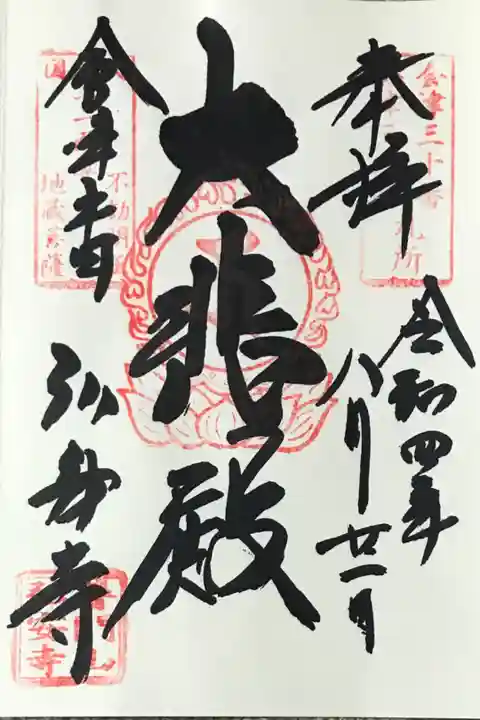 奉拝
令和四年
八月廿一日
大悲殿
會津
弘安寺
会津三十
札所
不動明王
地蔵菩薩
普門山
弘安寺